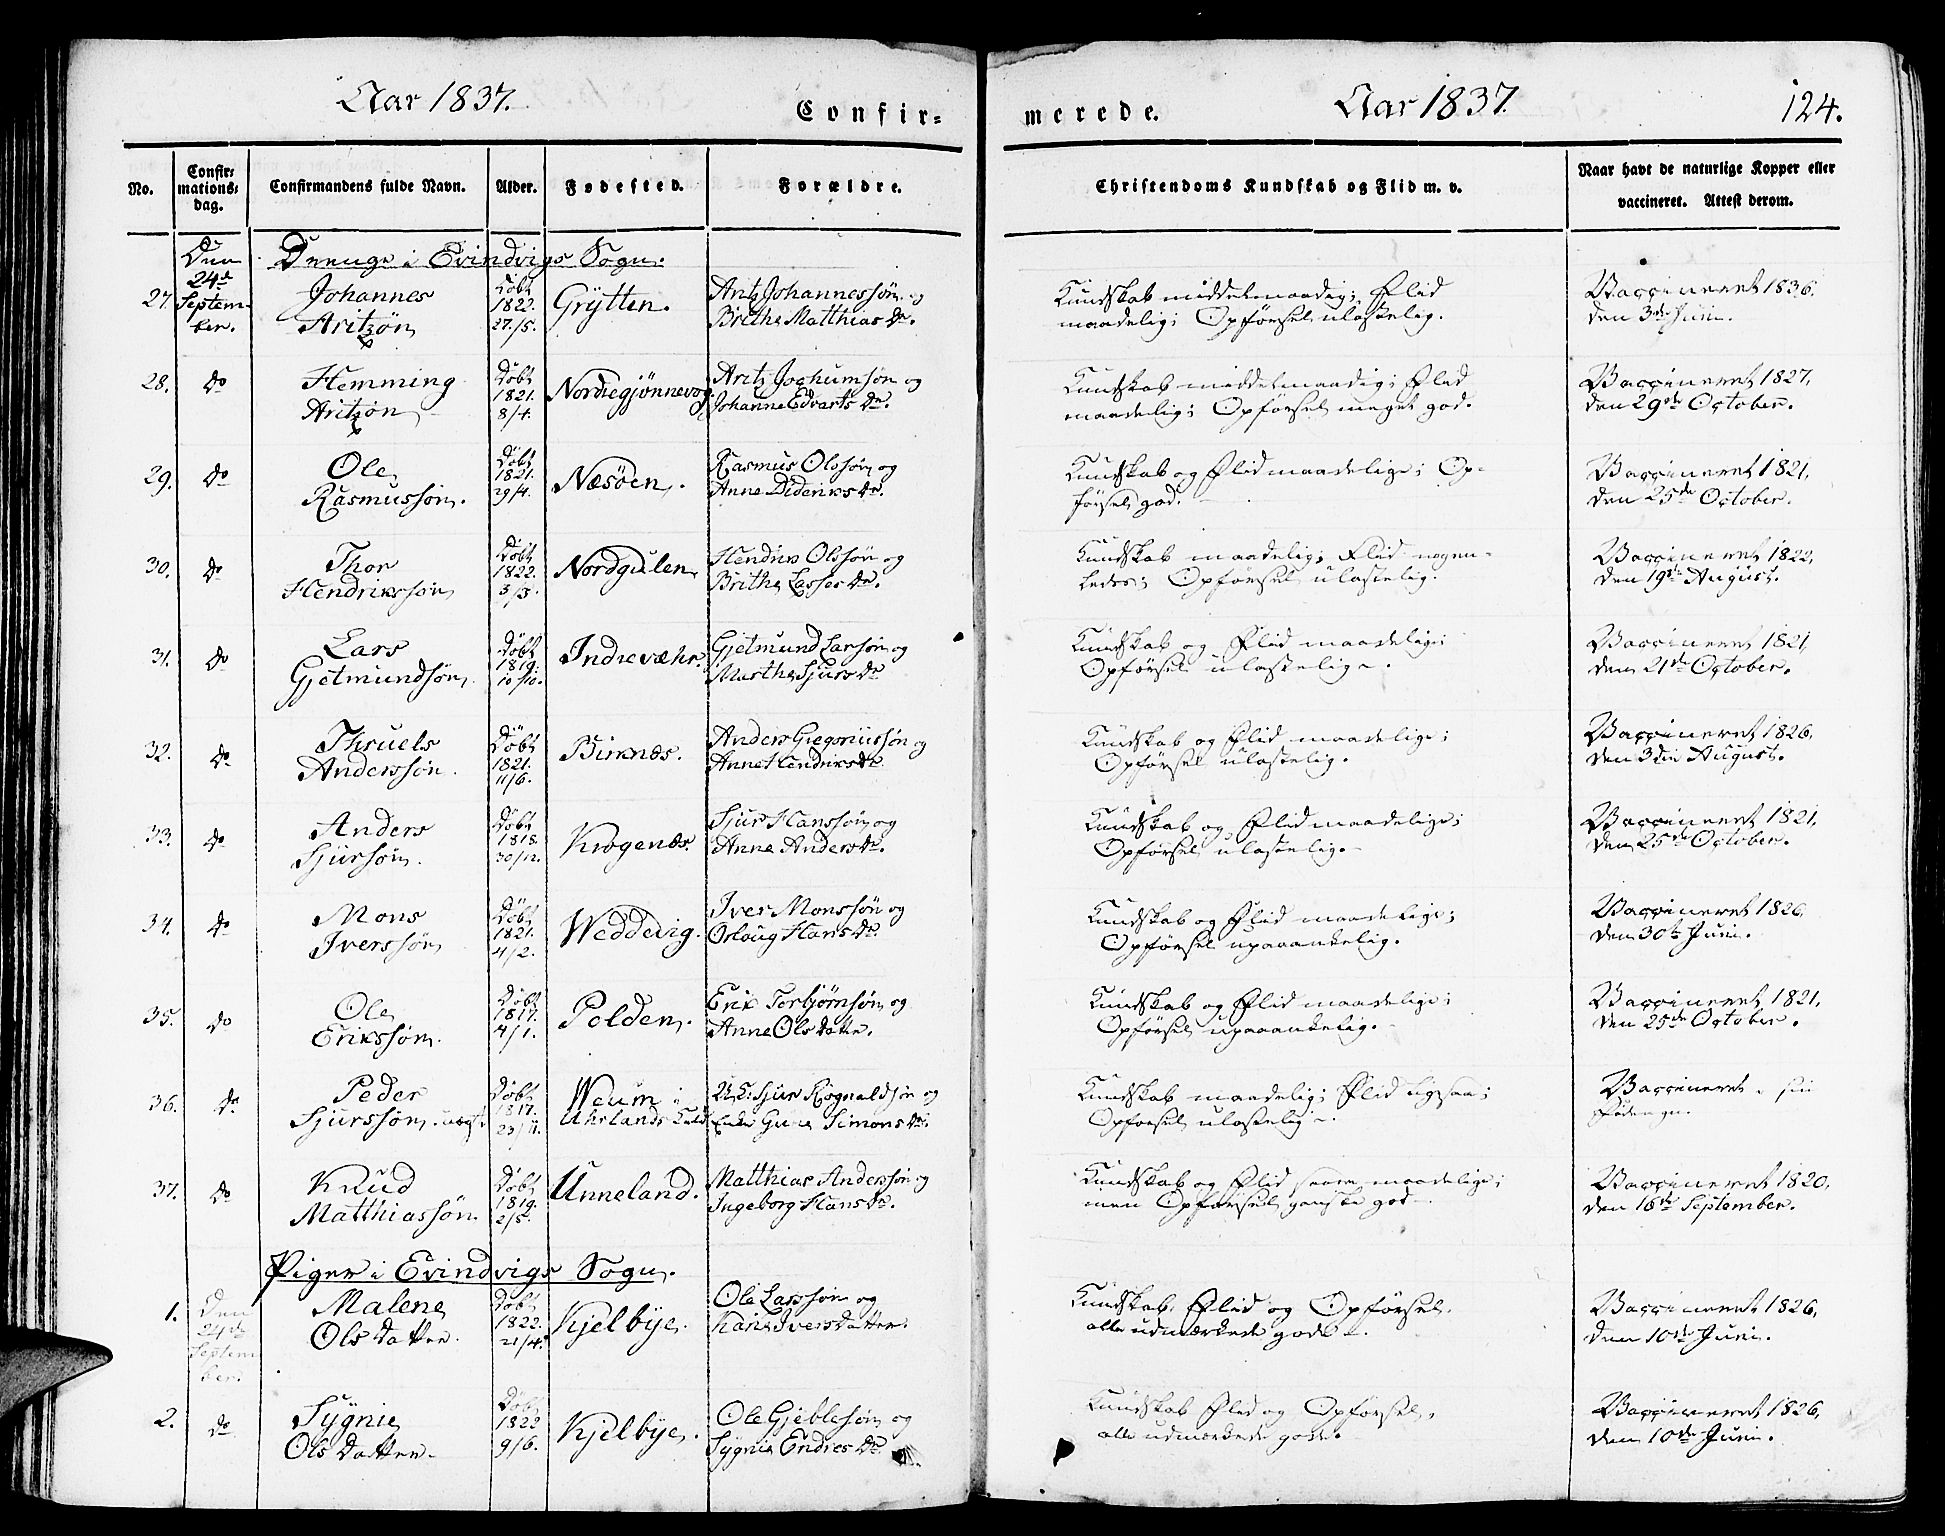 Aar 1837.
Confir=
merede.
Aar 1837.
124.
No.
Confir=
mations=
dag.
Confirmandens fulde Navn.
Alder.
Fødested.
Forældre.
Christendoms Kundskab og Flid m. v.
Naar havt de naturlige Kopper eller
vaccineret. Attest derom.
Den
24de
Septem-
ber.
Drenge i Evindvigs Sogn.
27.
Johannes
Aritzøn
Døbt
1822.
27./5.
Grÿtten.
Aritz Johannessøn og
Brithe Matthias Dr.
Kundskab middelmaadig; Flid
maadelig; Opførsel ulastelig.
Vaccineret 1836.
den 3de Juni.
28.
do
Hemming
Aritzøn
Døbt
1821.
8/4.
Nordregjønnevog
Aritz Jochumsøn og
Johanne Edvarts Dr.
Kundskab middelmaadig; Flid
maadelig; Opførsel meget god.
Vaccineret 1827,
den 29de October.
29.
do
Ole
Rasmussøn.
Døbt
1821.
29/4.
Næsøen.
Rasmus Olssøn og
Anne Dideriks Dr.
Kundskab og Flid maadelige; Op-
førsel god.
Vaccineret 1821,
den 25de October.
30.
do
Thor
Hendrikssøn
Døbt
1822.
3/3.
Nordgulen,
Hendrik Olssøn og
Brithe Lasses Dr.
Kundskab maadelig; Flid nogen-
ledes; Opførsel ulastelig.
Vaccineret 1822,
den 19de August.
31.
do
Lars
Gjetmundsøn.
Døbt
1819.
10/10.
Indrevæhr.
Gjetmund Larsøn og
Marthe Sjurs Dr
Kundskab og Flid maadelige;
Opførsel ulastelig.
Vaccineret 1821,
den 21de October.
32.
do
Thruels
Anderssøn.
Døbt
1821.
11/6.
Birknæs.
Anders Gregoriussøn og
Anne Hendriks Dr
Kundskab og Flid maadelige;
Opførsel ulastelig.
Vaccineret 1826,
den 3die August.
33.
do
Anders
Sjursøn.
Døbt
1818.
30/12.
Krogenæs.
Sjur Hanssøn og
Anne Anders Dr.
Kundskab og Flid maadelige;
Opførsel ulastelig.
Vaccineret 1821,
den 25de October.
34.
do
Mons
Iverssøn
Døbt
1821.
4/2.
Weddevig.
Iver Monssøn og
Orloug Hans Dr.
Kundskab og Flid maadelige;
Opførsel upaaankelig.
Vaccineret 1826,
den 30te Juni.
35.
do
Ole
Erikssøn.
Døbt
1817.
4/1.
Polden.
Erik Torbjørnsøn og
Anne Ols Datter.
Kundskab og Flid maadelige;
Opførsel upaaankelig.
Vaccineret 1821,
den 25de October.
36.
do
Peder
Sjurssøn. uægt.
Døbt
1817.
23/11.
Weum i
Uhrlands
Sjur Rognaldsøn og
Enke Guri Simons Dr.
Kundskab maadelig; Flid ligesaa;
Opførsel ulastelig.
Vaccineret
37.
do
Knud
Matthiassøn.
Døbt
1819.
2/5.
Unneland.
Matthias Anderssøn og
Ingeborg Hans Dr.
Kundskab og Flid saare maadelige;
men Opførsel ganske god.
Vaccineret 1820,
den 16de September.
Piger i Evindvigs Sogn.
1.
Den
24de
Septem
ber.
Malene
Ols Datter.
Døbt
1822.
21/4.
Kjelbÿe.
Ole Larssøn og
Kari Ivers Datter.
Kundskab, Flid og Opførsel,
alle udmærkede gode.
Vaccineret 1826,
den 10de Juni.
2.
do
Sÿgnie
Ols Datter.
Døbt
1822
9/6.
Kjelbÿe.
Ole Gjeblesøn og
Sÿgnie Endres Dr.
Kundskab Flid og Opførsel,
alle udmærkede gode.
Vaccineret 1826,
den 10de Juni.